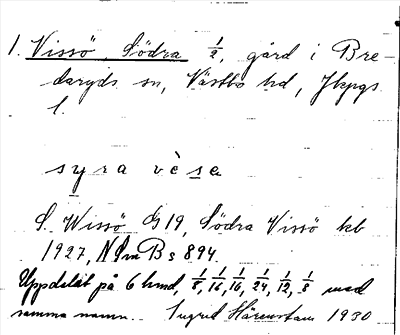 1. Vissö, Södra 1/2, gård i Bre-
daryds sn, Västbo hd, Jkpgs
l.
syra vèse
S. Wissö G19, Södra Vissö kb
1927, NSmB s 894.
Uppdelat på 6 hmd, 1/8, 1/16, 1/16, 1/24, 1/12, 1/8 med
samma namn. Ingrid Härenstam 1930